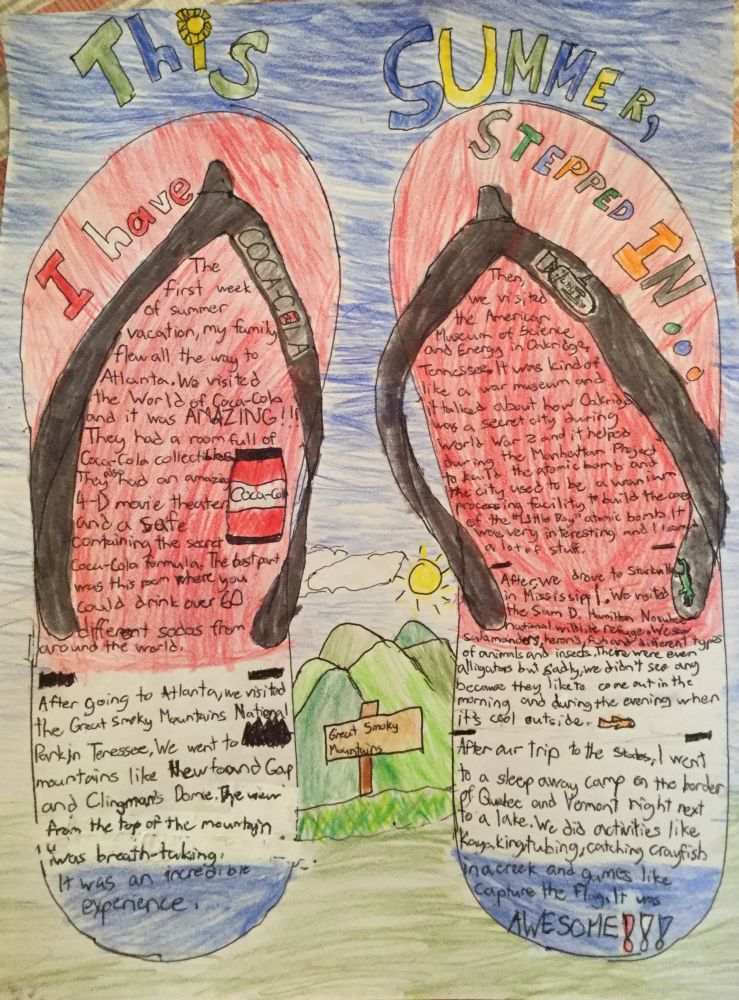 This SUMMER,
I have
STEPPED IN...
COCA-COLA
The
first week
of summer
vacation, my family
flew all the way to
Atlanta. We visited
the World of Coca-Cola
and it was AMAZING!!!
They had a room full of
Coca-Cola collectibles.
They also had an amazing
4-D movie theater
and a safe
containing the secret
Coca-Cola formula. The best part
was this room where you
could drink over 60
different sodas from
around the world.
Coca-Cola
After going to Atlanta, we visited
the Great Smoky Mountains National
Park in Tenessee, We went to
mountains like Newfoand Gap
and Clingman's Dome. The view
from the top of the mountain
was breath-taking.
It was an incredible
experience.
Great Smoky
Mountains
Then,
we visited
the American
Museum of Science
and Energy in Oakridge,
Tennessee. It was kind of
like a war museum and
it talked about how Oakridge
was a secret city during
World War 2 and it helped
during the Manhattan Project
to build the atomic bomb and
the city used to be a uranium
processing facility to build the core
of the "Little Boy" atomic bomb. It
was very interesting and I learned
a lot of stuff.
After, we drove to Starkville
in Mississippi. We visited
the Siam D. Hamilton Noxubee
national wildlife refuge. We saw
salamanders, herons, fish and different types
of animals and insects. There were even
alligators but sadly, we didn't see any
because they like to come out in the
morning and during the evening when
it's cool outside.
After our trip to the States, I went
to a sleep away camp on the border
of Quebec and Vermont right next
to a lake. We did activities like
Kayaking, tubing, catching crayfish
in a creek and games like
Capture the Flag. It was
AWESOME!!!